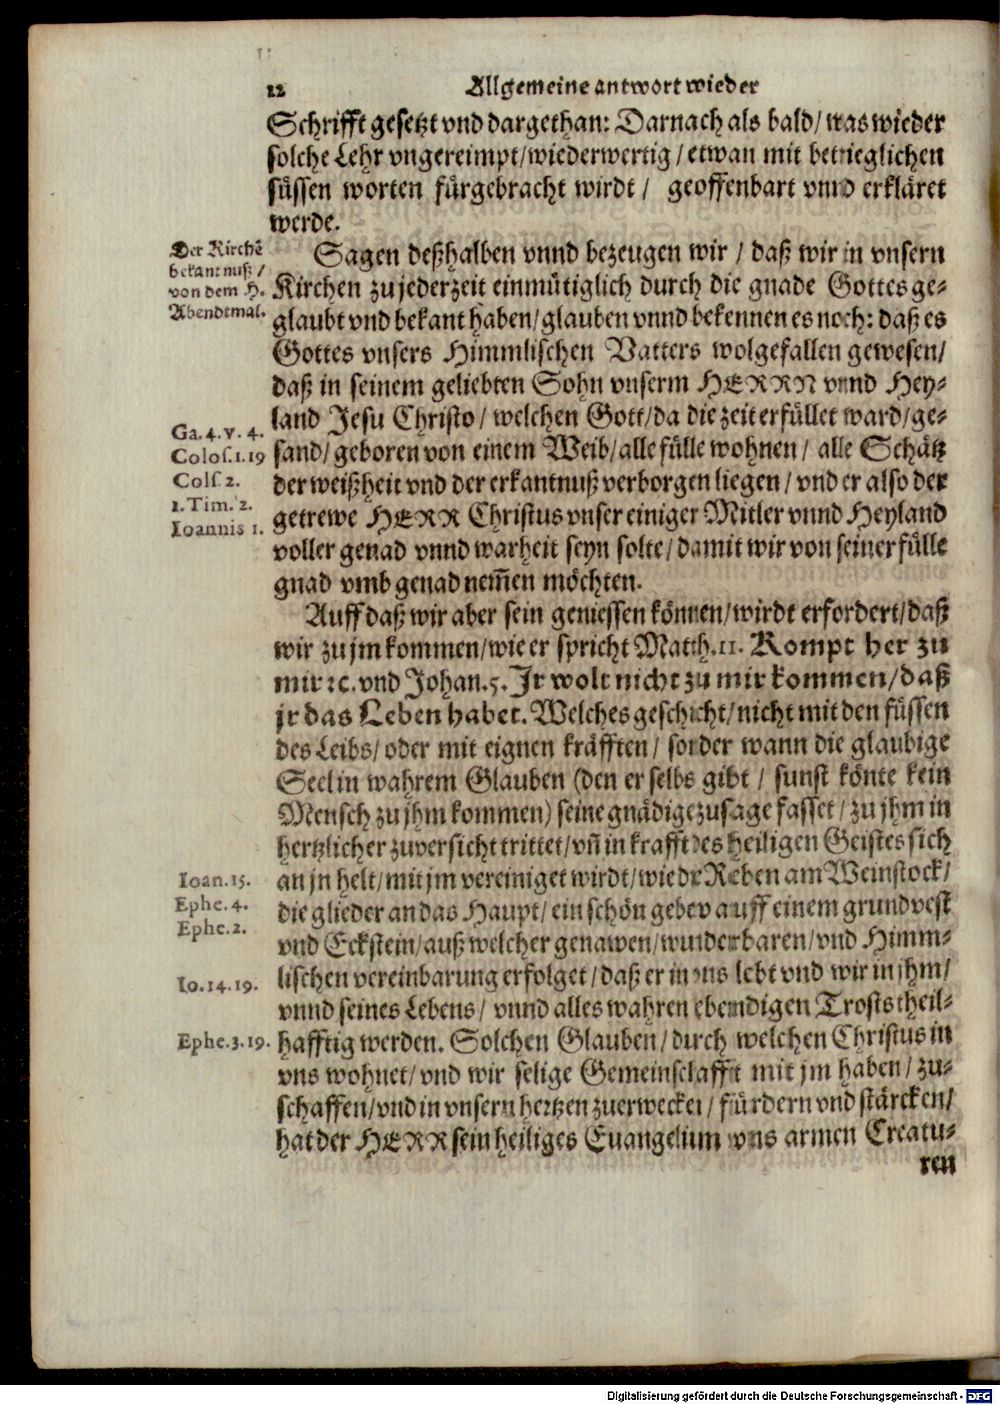 12 Allgemeine antwort wieder
Schrifft gesetzt vnd dargethan: Darnach als bald/ was wieder
solche Lehr vngereimpt/ wiederwertig/ etwan mit betrieglichen
süssen worten fürgebracht wirdt/ geoffenbart vnnd erkläret
werde.
Der Kirchē
bekantnuß/
von dem H.
Abendtmal.
Sagen deßhalben vnnd bezeugen wir/ daß wir in vnsern
Kirchen zu jederzeit einmütiglich durch die gnade Gottes ge-
glaubt vnd bekant haben/ glauben vnnd bekennen es noch: daß es
Gottes vnsers Himmlischen Vatters wolgefallen gewesen/
daß in seinem geliebten Sohn vnserm HERRN vnnd Hey-
land Jesu Christo/ welchen Gott/ da die zeit erfüllet ward/ ge-
sand/ geboren von einem Weib/ alle fülle wohnen/ alle Schätz
der weißheit vnd der erkantnuß verborgen liegen/ vnd er also der
getrewe HERR Christus vnser einiger Mitler vnnd Heyland
voller genad vnnd warheit seyn solte/ damit wir von seiner fülle
gnad vmb genad nem̄en möchten.
Ga. 4. v. 4.
Colos. 1. 19
Cols. 2.
1. Tim. 2.
Ioannis 1.
Auff daß wir aber sein geniessen können/ wirdt erfordert/ daß
wir zu jm kommen/ wie er spricht Matth. 11. Kompt her zu
mir ꝛc. vnd Johan. 5. Jr wolt nicht zu mir kommen/ daß
jr das Leben habet. Welches geschicht/ nicht mit den füssen
des Leibs/ oder mit eignen kräfften/ sonder wann die glaubige
Seel in wahrem Glauben (den er selbs gibt/ sunst könte kein
Mensch zu jhm kommen) seine gnädige zusage fasset/ zu jhm in
hertzlicher zuversicht trittet/ vn̄ in krafft des heiligen Geistes sich
an jn helt/ mit jm vereiniget wirdt/ wie die Reben am Weinstock/
die glieder an das Haupt/ ein schön gebew auff einem grundvest
vnd Eckstein/ auß welcher genawen/ wunderbaren/ vnd Himm-
lischen vereinbarung erfolget/ daß er in vns lebt vnd wir in jhm/
vnnd seines Lebens/ vnnd alles wahren lebendigen Trosts theil-
hafftig werden. Solchen Glauben/ durch welchen Christus in
vns wohnet/ vnd wir selige Gemeinschafft mit jm haben/ zu-
schaffen/ vnd in vnsern hertzen zuerwecken/ fürdern vnd stärcken/
hat der HERR sein heiliges Euangelium vns armen Creatu-
ren
Ioan. 15.
Ephe. 4.
Ephe. 2.
Io. 14. 19.
Ephe. 3. 19.
Digitalisierung gefördert durch die Deutsche Forschungsgemeinschaft - DFG